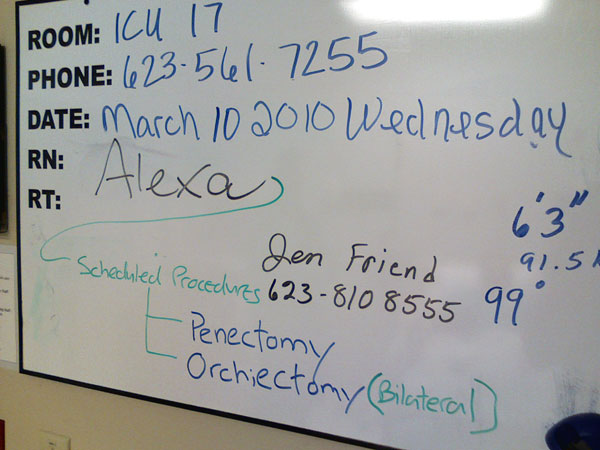 ROOM: ICU 17
PHONE: 623-561-7255
DATE: March 10 2010 Wednesday
RN: Alexa
RT:
6'3"
91.5k
Jen Friend
623-810 8555
99°
Scheduled Procedures
Penectomy
Orchiectomy (Bilateral)